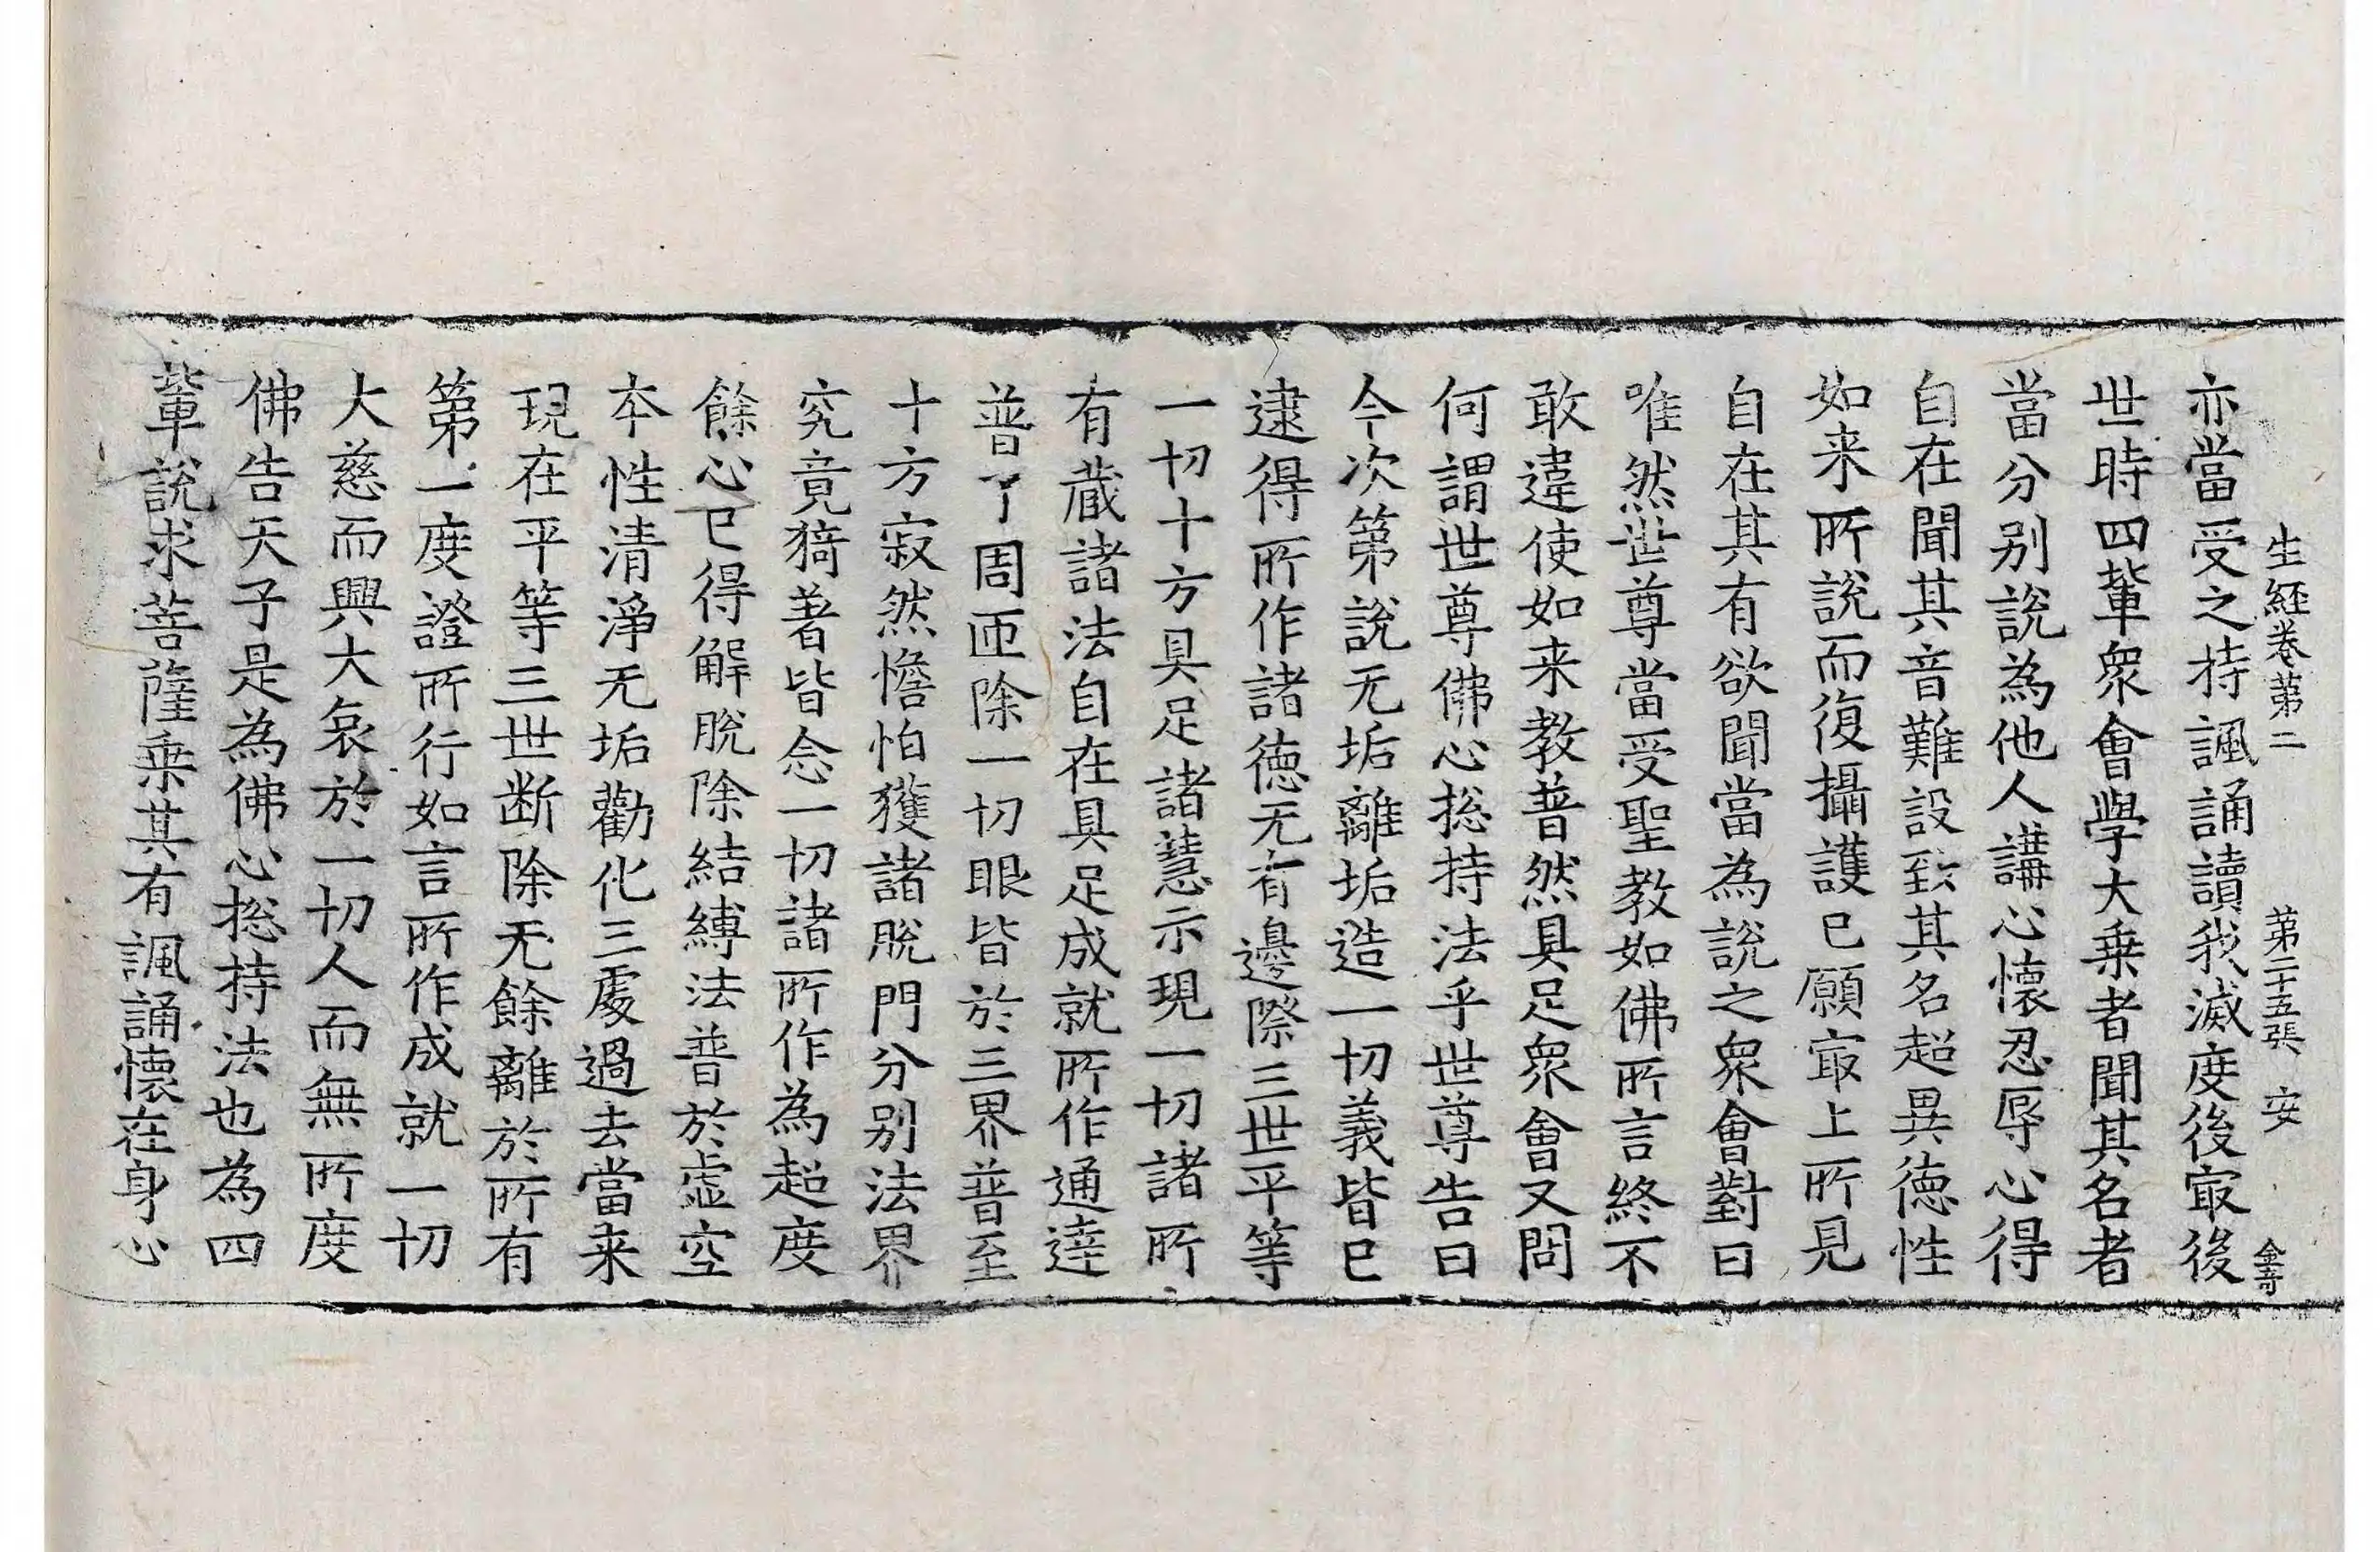 生經卷第二 第二十五張 安 金奇
亦當受之持諷誦讀我滅度後㝡後
世時四輩衆會學大乗者聞其名者
當分别說為他人講心懷忍辱心得
自在聞其音難設致其名超異徳性
如来所說而復攝護已願㝡上所見
自在其有欲聞當為說之衆會對曰
唯然世尊當受聖教如佛所言終不
敢違使如来教普然具足衆會又問
何謂世尊佛心捴持法乎世尊告曰
今次第說无垢離垢造一切義皆已
逮得所作諸徳无有邊際三世平等
一切十方具足諸慧示現一切諸所
有蔵諸法自在具足成就所作通達
普了周匝除一切眼皆於三界普至
十方寂然憺怕獲諸脫門分别法界
究竟猗著皆念一切諸所作為超度
餘心已得解脫除結縛法普於虚空
本性清淨无垢勸化三處過去當来
現在平等三世断除无餘離於所有
第一度證所行如言所作成就一切
大慈而興大哀於一切人而無所度
佛告天子是為佛心捴持法也為四
輩說求菩薩乗其有諷誦懷在身心